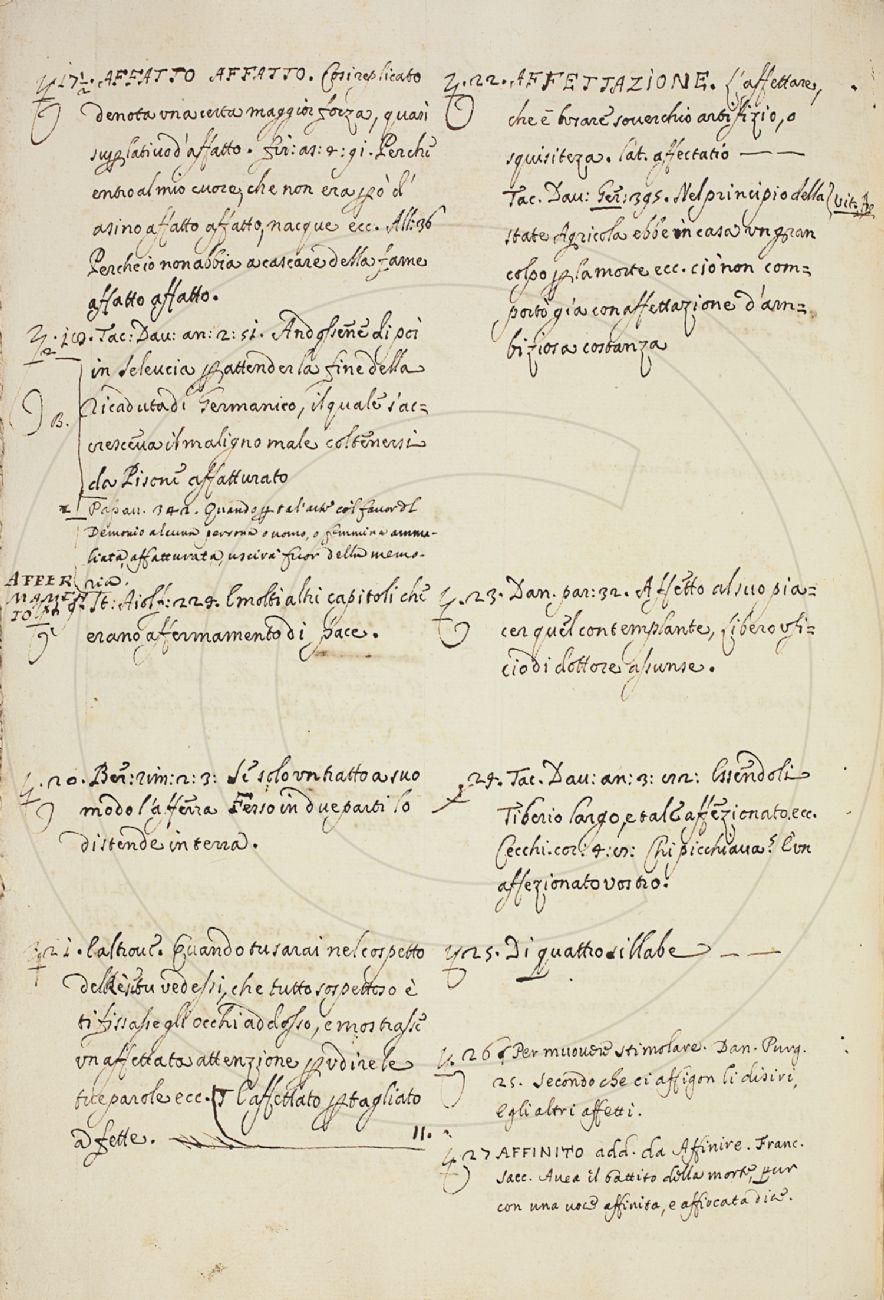 17½. AFFATTO AFFATTO. Cosi replicato
denota una certa maggior forza, quasi
suplativo d'affatto. fir: as: 4: 91. Perchè
entro al mio cuore, che non era pò d'
asino affatto affatto, nacque ecc. All: 36
Perche io non abbia a cascare della fame
affatto affatto.
19. Tac: Dav: an: 2: 51. Andossene di poi
in Seleucia p attender la fine della
Ricaduta di Germanico, il quale s'ac=
cresceva il maligno male col tenersi
da Pisone affatturato
B.
Passav. 342. Quando p tal'arte col favor del
Demonio alcuna persona o uomo, o femmina amma-
liata, affatturata, uscirà fuor della memo-
ria.
AFFER
MAMEN
TO
St: Aiolf: 224. E molti altri capitoli che
erano affermamento di pace.
20. Ber: rim: 2: 3: Se solo un tratto a suo
modo l'afferra Ferso in due parti lo
distende in terra.
21. Ealtrove. Quando tu sarai nel cospetto
del Rè, si tu vedessi, che tutto sospettoso è
ti fissasse gli occhi addosso, e mostrasse
un affettata attenzione p udire le
tue parole ecc. L'affettato p tagliato
a fette.
22. AFFETTAZIONE. L'affettare,
che è usare soverchio artifizio, o
squisiteza. lat. affectatio
Tac. Dav: Ger: 395. Nel principio della
vit: Ag
state Agricola ebbe in casa un gran
colpo p la morte ecc. ciò non com=
portò già con affettazione d'am=
biziosa costanza
23. Dan. par: 32. Affetto al suo pia=
cer quel contemplante, Libero ofi=
cio di dottore assunse.
24. Tac. Dav: an: 3: Essendoli
Tiberio largo, e tale affezionato, ecc.
Cecchi. cor: 4: Chi picchiava? E un
affezionato vostro.
25. Di quattro sillabe
26 Per muovere stimolare. Dan. Purg.
25. Secondo che ci affigon li disiri,
e gli altri affetti.
27 AFFINITO add. da Affinire. Franc.
Sacc. Avea il battito della morte, pur
con una voce affinita, e affiocata dice.